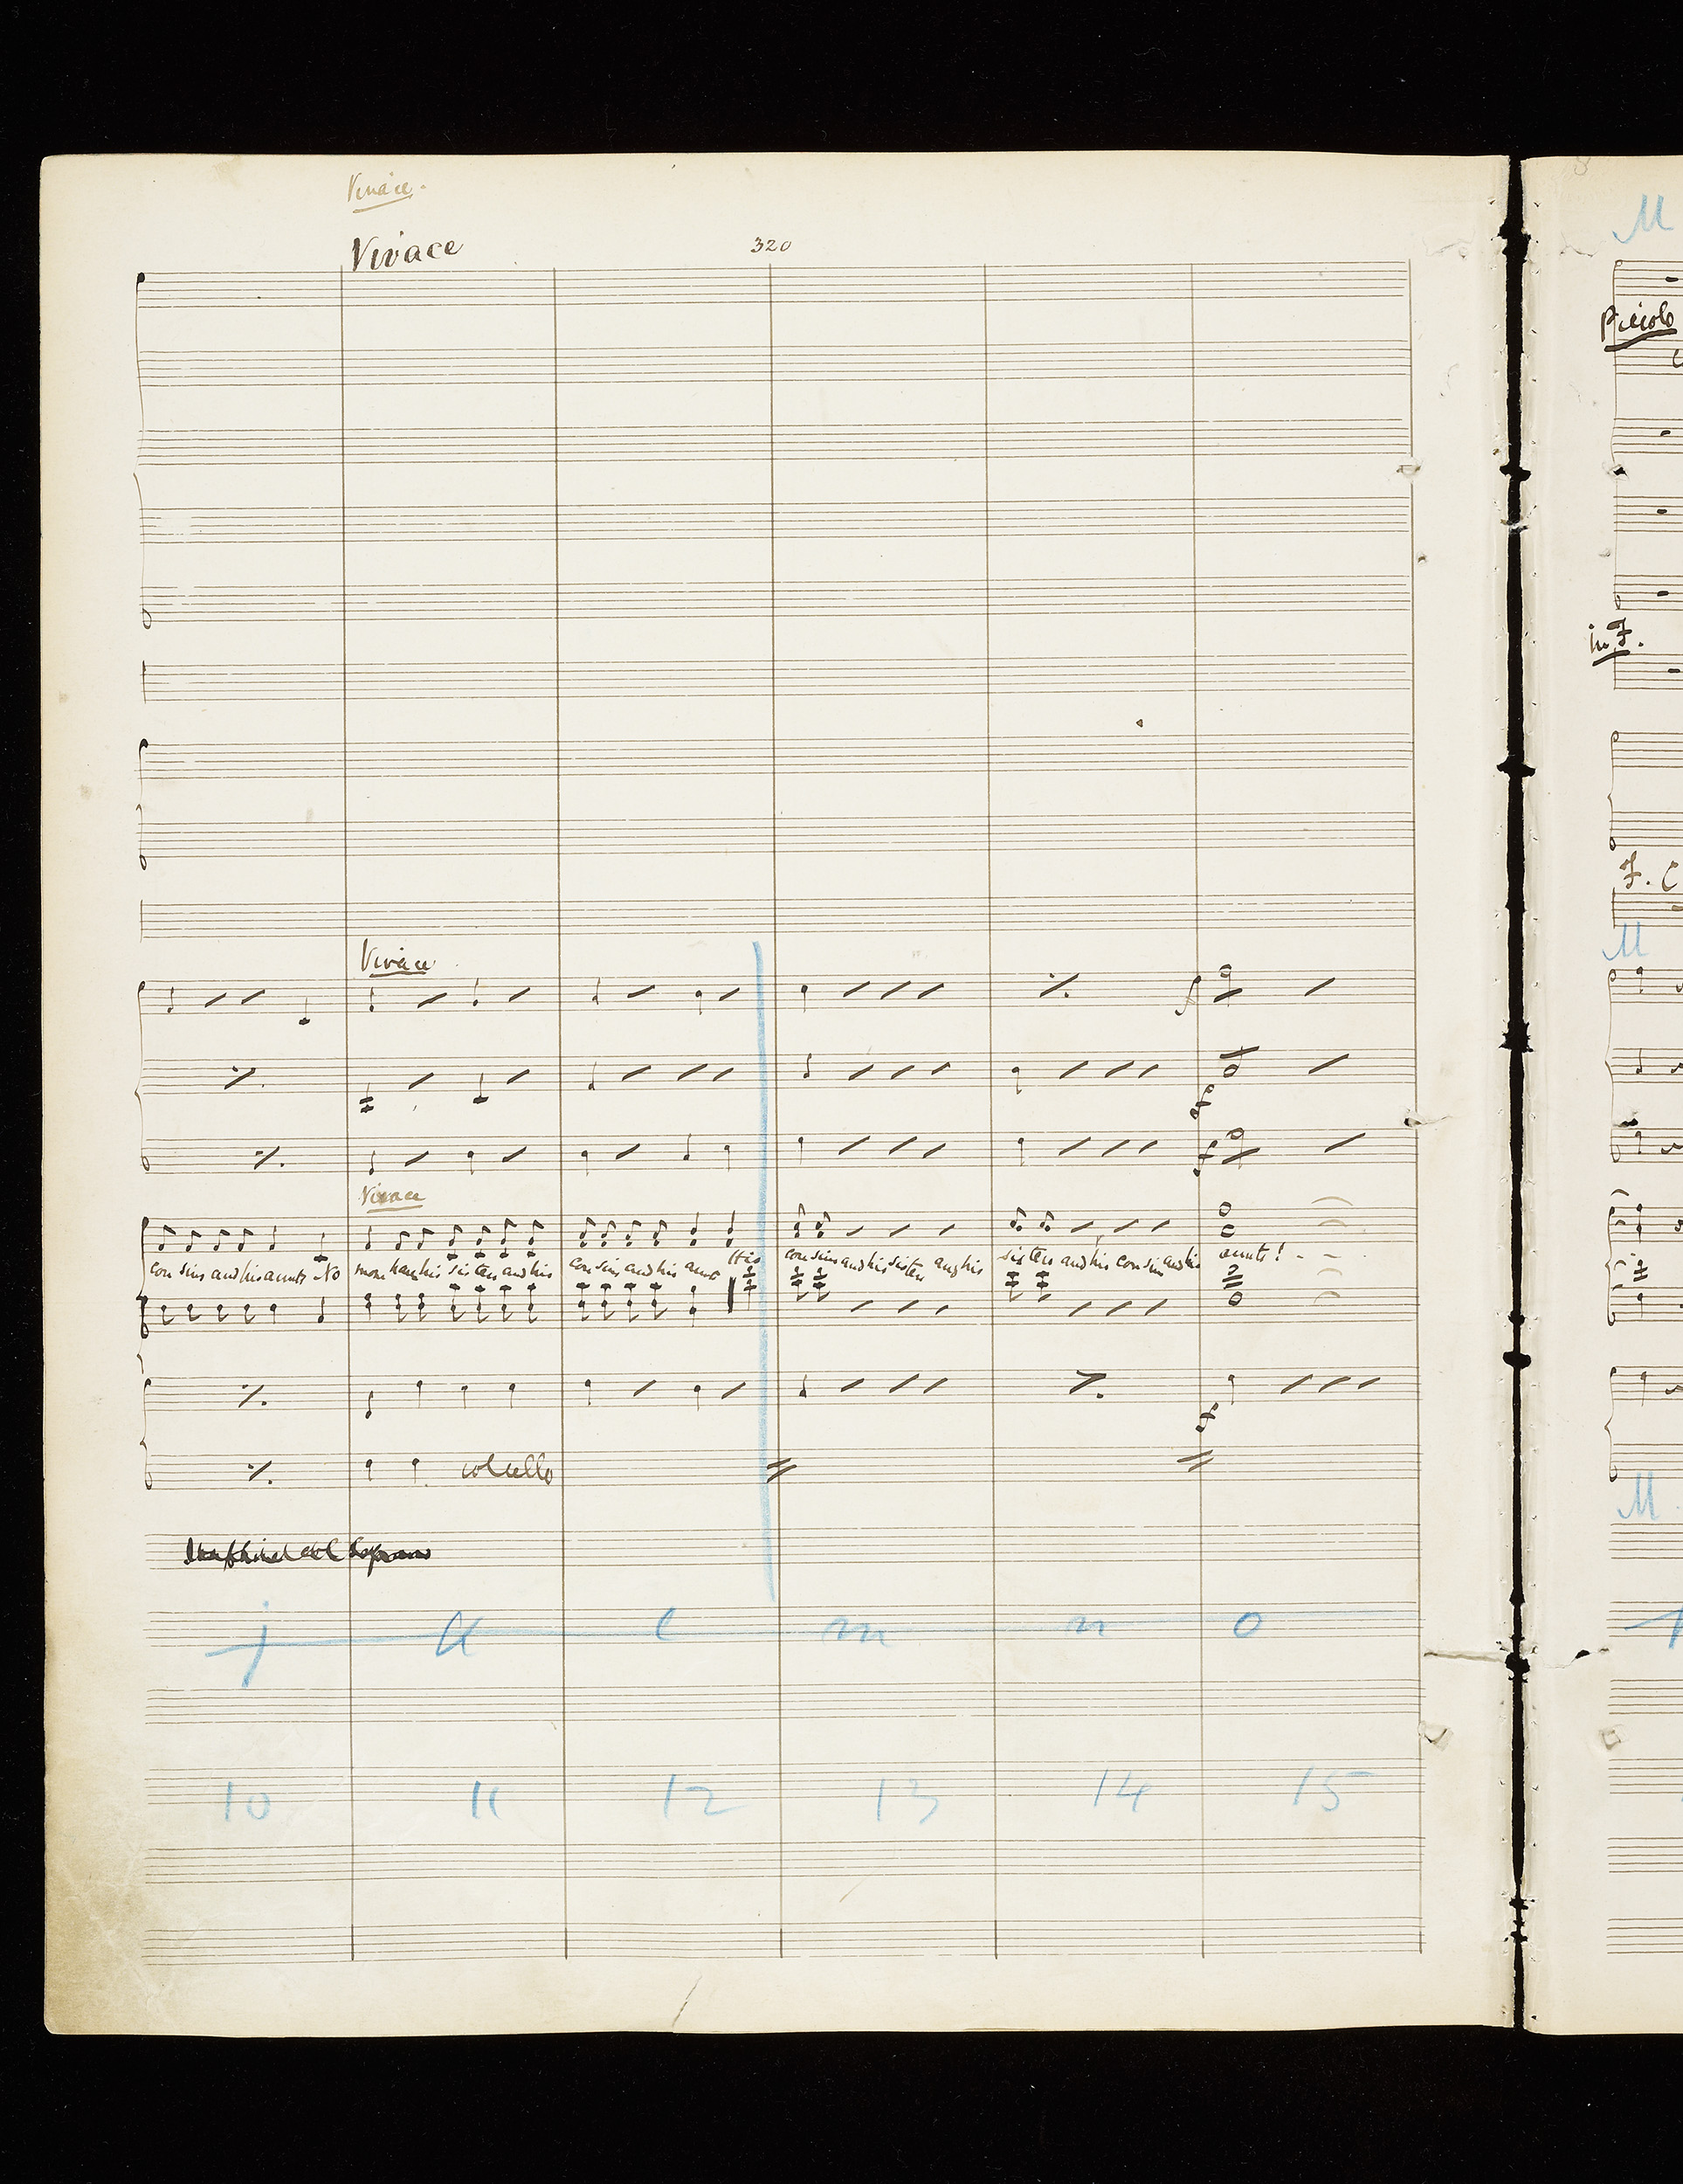 Vivace.
Vivace 320
Vivace
Vivace
cousins and his aunts No more than his sisters and his cousins and his aunts His cousins and his sisters and his sisters and his cousins and his aunts!
f
f
f
f
col cello
j K l m n o
10 11 12 13 14 15
M
Piccolo
in F.
M
M